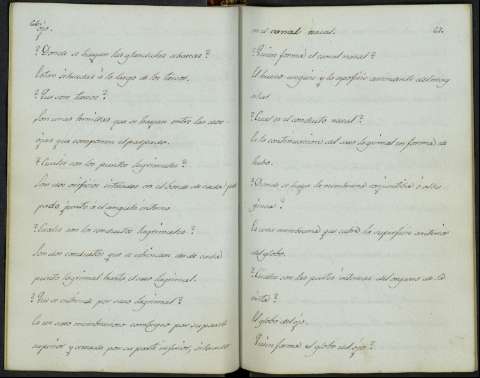 60.
ojo.
?Donde se hayan las glandulas sebaceas?
Estan situadas á lo largo de los tarsos.
?Que son tarsos?
Son unas ternillas que se hayan entre las dos
ojas que componen el parpado.
?Cuales son los puntos lagrimales?
Son dos orificios situados en el borde de cada par
pado junto á el angulo interno.
?Cuales son los conductos lagrimales?
Son dos conductos que se estienden desde cada
punto lagrimal hasta el saco lagrimal.
?Que se entiende por saco lagrimal?
Es un saco membranoso contiguo por su parte
superior y cerrado por su parte inferior, situado
61.
en el canal nasal.
?Quien forma el canal nasal?
El hueso unguis y la apofisis ascendente del maxi
nilar
?Cual es el conducto nasal?
Es la continuacion del saco lagrimal en forma de
tubo.
?Donde se haya la membrana conjuntiba ó
?
Es una membrana que cubre la superficie anterior
del globo.
?Cuales son las partes internas del organo de la
vista?
El globo del ojo.
?Quien forma el globo del ojo?